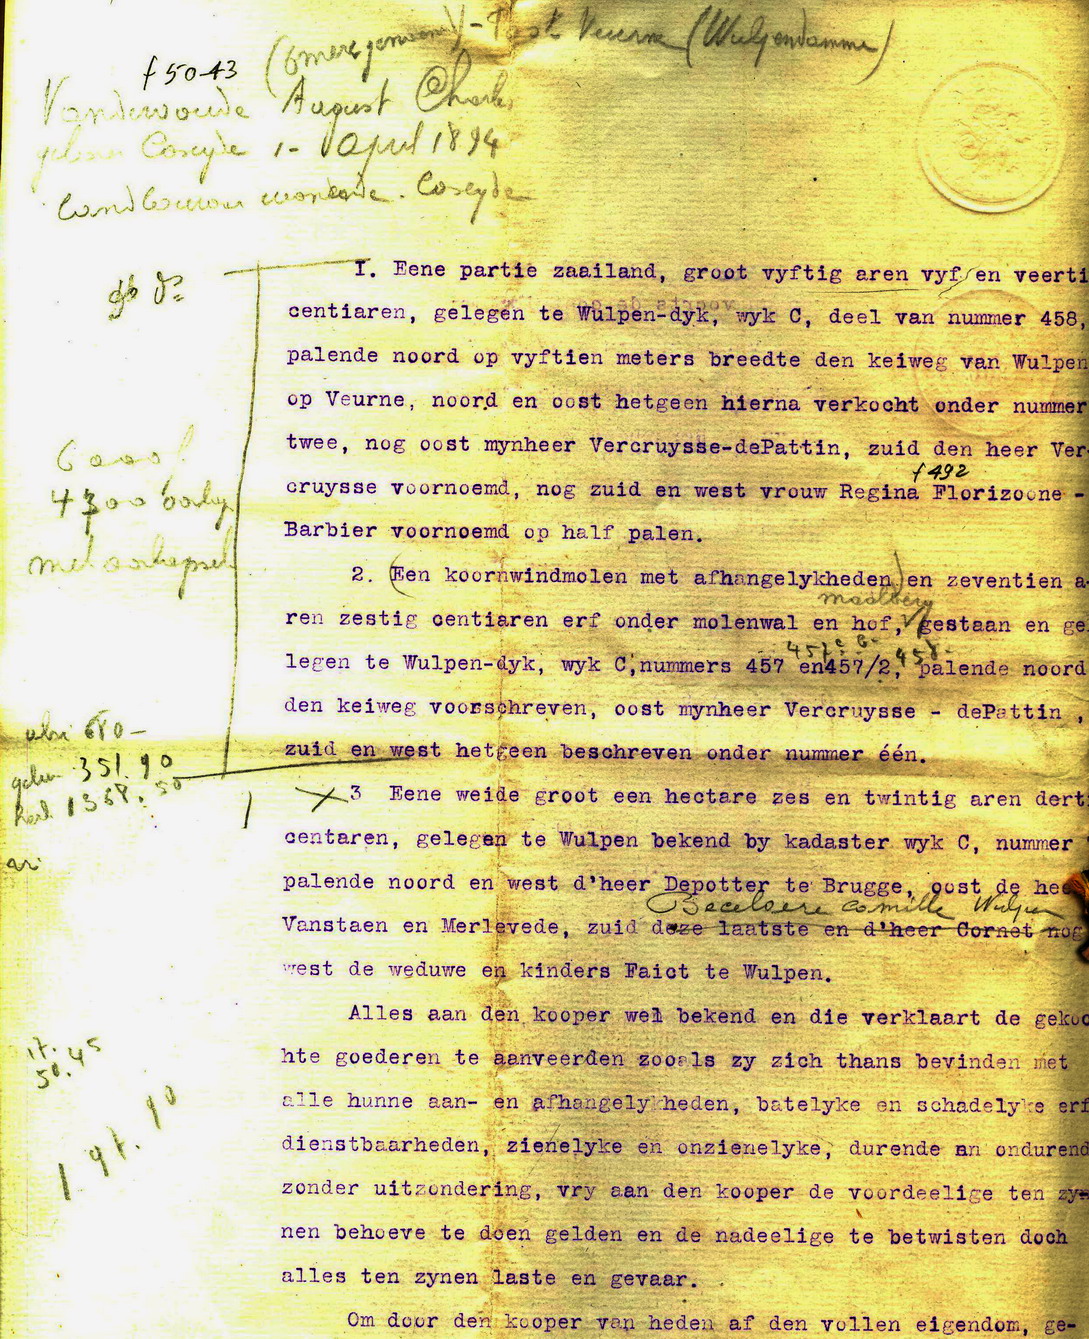 Veurne (Wulpendamme)
f 50-43
Vandewoude August Charles
Coxyde 1- April 1894
landbouwer wonende. Coxyde
I. Eene partie zaailand, groot vyftig aren vyf en veerti
centiaren, gelegen te Wulpen-dyk, wyk C, deel van nummer 458,
palende noord op vyftien meters breedte den keiweg van Wulpen
op Veurne, noord en oost hetgeen hierna verkocht onder nummer
twee, nog oost mynheer Vercruysse-dePattin, zuid den heer Ver-
f 492
cruysse voornoemd, nog zuid en west vrouw Regina Florizoone -
Barbier voornoemd op half palen.
2. (Een koornwindmolen met afhangelykheden) en zeventien a-
ren zestig centiaren erf onder molenwal en hof, gestaan en ge
legen te Wulpen-dyk, wyk C, nummers 457 en457/2, palende noord
den keiweg voorschreven, oost mynheer Vercruysse - dePattin ,
zuid en west hetgeen beschreven onder nummer één.
680 -
351.90
1368.50
3 Eene weide groot een hectare zes en twintig aren dert
centaren, gelegen te Wulpen bekend by kadaster wyk C, nummer
palende noord en west d'heer Depotter te Brugge, oost de hee
Beceloere Camille Wulpen
Vanstaen en Merlevede, zuid deze laatste en d'heer Cornet nog
west de weduwe en kinders Faict te Wulpen.
Alles aan den kooper wel bekend en die verklaart de gekoc
hte goederen te aanveerden zooals zy zich thans bevinden met
17.
50.45
alle hunne aan- en afhangelykheden, batelyke en schadelyke erf
197.90
dienstbaarheden, zienelyke en onzienelyke, durende an ondurend
zonder uitzondering, vry aan den kooper de voordeelige ten zy-
nen behoeve te doen gelden en de nadeelige te betwisten doch
alles ten zynen laste en gevaar.
Om door den kooper van heden af den vollen eigendom, ge-